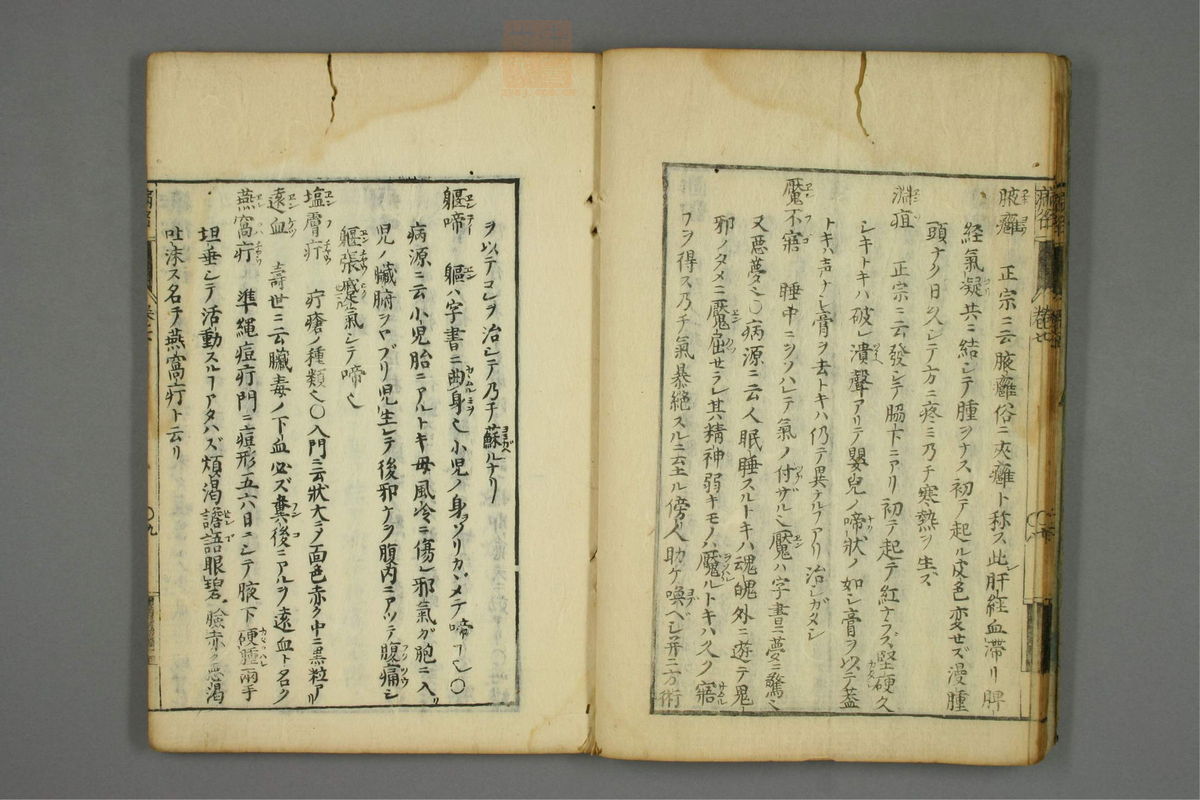 腋癰　正宗ニ云腋癰俗ニ夾癰ト称ス此肝経血滞リ脾
経氣凝共ニ結シテ腫ヲナス初テ起ル皮色変セズ漫腫
頭ナク日久シテ方ニ疼ミ乃チ寒熱ヲ生ズ
正宗ニ云發シテ脇下ニアリ初テ起テ紅ナラズ堅硬久
シキトキハ破レ潰聲アリテ嬰児ノ啼状ノ如シ膏ヲ以テ蓋
トキハ声ナシ膏ヲ去トキハ仍テ異ナルヿアリ治シガタシ
魘不寤　睡中ニヲソハレテ氣ノ付ザル也魘ハ字書ニ夢ニ驚也
又惡夢也〇病源ニ云人眠睡スルトキハ魂魄外ニ遊テ鬼
邪ノタメニ魘屈セラレ其精神弱キモノハ魘ルトキハ久ク寤
ヿヲ得ス乃チ氣暴絶スルニ至ル傍人助ケ喚ベシ并ニ方術
ヲ以テコレヲ治シテ乃チ蘇ルナリ
軀啼　軀ハ字書ニ曲身也小児ノ身ソリカヾメテ啼ヿ也〇
病源ニ云小児胎ニアルトキ母風冷ニ傷レ邪氣ガ胞ニ入リ
児ノ臓腑ヲヤブリ児生レテ後邪ケヲ腹内ニアツテ腹痛シ
軀張蹙氣シテ啼也
塩膚疔　疔瘡ノ種類也〇入門ニ云状大ヲ面色赤ク中ニ黒粒アリ
遠血　壽世ニ云臓毒ノ下血必ズ糞後ニアルヲ遠血ト名ク
燕窩疔　準縄痘疔門ニ痘形五六日ニシテ腋下硬腫両手
坦垂レテ活動スルヿアタハズ煩渇譫語眼碧臉赤ク悪渇
吐沫ス名テ燕窩疔ト云リ